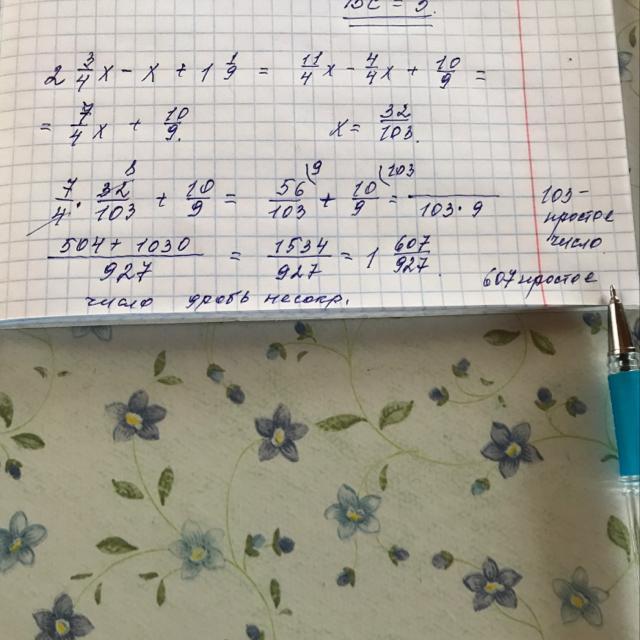 BC = 5.
2 3/4 x - x + 1 1/9 = 11/4 x - 4/4 x + 10/9 =
= 7/4 x + 10/9. x = 32/103.
8 \9 \103
7/4 · 32/103 + 10/9 = 56/103 + 10/9 = /103·9 103-
простое
число
504 + 1030/927 = 1534/927 = 1 607/927.
607 простое
число дробь несокр.